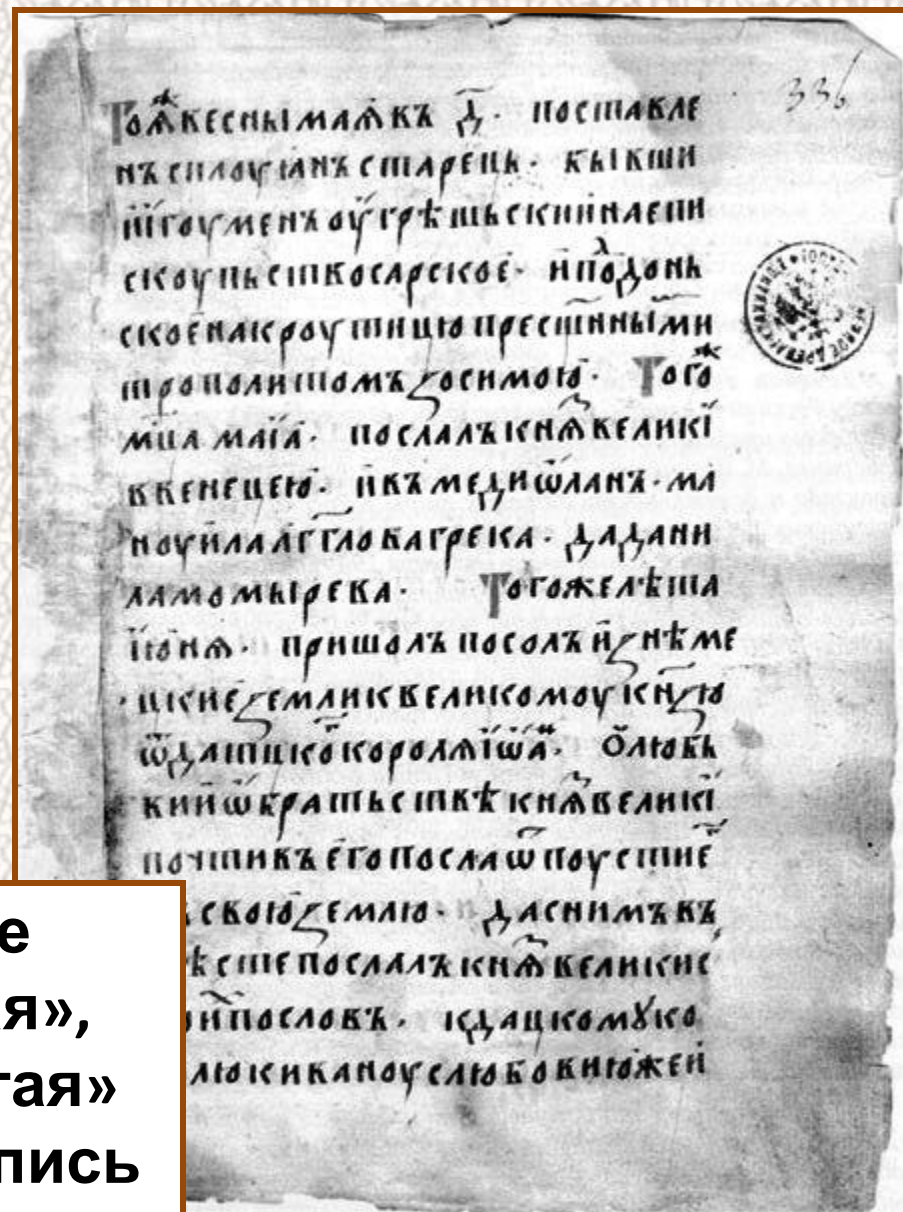 336
Тоѧ҆ⷤвесныⷨаѧ҆въ д҃· поставле
нъ силоуꙗнъ старе́ць· бывши
и҆гоуменъ оу҆грѣшьскии на епи
скоупьство сарское· и҆ поⷣдонь
ское на кроутицю прест҃ннымми
трополитомъ ꙁосимою· Тогоⷤ
мц҃а маіа· послалъ кнѧⷥ великі
в венецею· и҆ въ медиѡланъ· ма
ноуила аггл҃ова грека· да дани
ла мамырева· Того же лѣта
і҆юнѧ· пришолъ посолъ иꙁ нѣме
цкие ꙁемли к великомоу кнꙁ҃ю
ѿ дацко королѧ і҆ѡа· О҆ любь
ви и҆ ѡ братьствѣ кнѧⷥ великі
почтивъ е҆го посла ѿпоустие
скою ꙁемлю· да с нимъ въ
ѣсте послалъ кнѧⷥ великие
пословъ· к дацкомꙋ ко
лю к ивану с любовию же и҆
е
я»,
гая»
пись